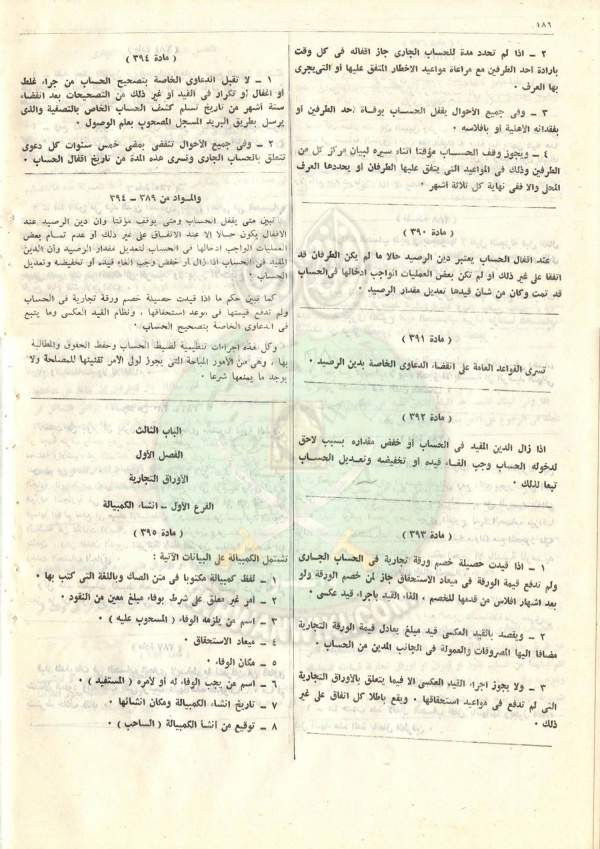 ١٨٦
٢ ــ اذا لم تحدد مدة للحساب الجارى جاز اقفاله فى كل وقت
بارادة احد الطرفين مع مراعاة مواعيد الاخطار المتفق عليها أو التى يجرى
بها العرف .
٣ ــ وفى جميع الأحوال يقفل الحساب بوفاة أحد الطرفين أو
بفقدانه الأهلية أو بافلاسه .
٤ ــ ويجوز وقف الحساب مؤقتا اثناء سيره لبيان مركز كل من
الطرفين وذلك فى المواعيد التى يتفق عليها الطرفان أو يحددها العرف
المحلى والا ففى نهاية كل ثلاثة أشهر .
( مادة ٣٩٠ )
عند اقفال الحساب يعتبر دين الرصيد حالا ما لم يكن الطرفان قد
اتفقا على غير ذلك أو لم تكن بعض العمليات الواجب ادخالها فى الحساب
قد تمت وكان من شأن قيدها تعديل مقدار الرصيد .
( مادة ٣٩١ )
تسرى القواعد العامة على انقضاء الدعاوى الخاصة بدين الرصيد .
( مادة ٣٩٢ )
اذا زال الدين المقيد فى الحساب أو خفض مقداره بسبب لاحق
لدخوله الحساب وجب الغاء قيده أو تخفيضه وتعديل الحساب
تبعا لذلك .
( مادة ٣٩٣ )
١ ــ اذا قيدت حصيلة خصم ورقة تجارية فى الحساب الجارى
ولم تدفع قيمة الورقة فى ميعاد الاستحقاق جاز لمن خصم الورقة ولو
بعد اشهار افلاس من قدمها للخصم ، الغاء القيد باجراء قيد عكسى .
٢ ــ ويقصد بالقيد العكسى قيد مبلغ يعادل قيمة الورقة التجارية
مضافا اليها المصروفات والعمولة فى الجانب المدين من الحساب .
٣ ــ ولا يجوز اجراء القيد العكسى الا فيما يتعلق بالأوراق التجارية
التى لم تدفع فى مواعيد استحقاقها . ويقع باطلا كل اتفاق على غير
ذلك .
( مادة ٣٩٤ )
١ ــ لا تقبل الدعاوى الخاصة بتصحيح الحساب من جراء غلط
أو اغفال أو تكرار فى القيد أو غير ذلك من التصحيحات بعد انقضاء
ستة أشهر من تاريخ تسلم كشف الحساب الخاص بالتصفية والذى
يرسل بطريق البريد المسجل المصحوب بعلم الوصول .
٢ ــ وفى جميع الأحوال تنقضى بمضى خمس سنوات كل دعوى
تتعلق بالحساب الجارى وتسرى هذه المدة من تاريخ اقفال الحساب .
والمواد من ٣٨٩ ــ ٣٩٤
تبين متى يقفل الحساب ومتى يوقف مؤقتا وأن دين الرصيد عند
الاقفال يكون حالا إلا عند الاتفاق على غير ذلك أو عدم تمام بعض
العمليات الواجب ادخالها فى الحساب لتعديل مقدار الرصيد وأن الدين
المقيد فى الحساب اذا زال أو خفض وجب الغاء قيده أو تخفيضه وتعديل
الحساب .
كما تبين حكم ما اذا قيدت حصيلة خصم ورقة تجارية فى الحساب
ولم تدفع قيمتها فى موعد استحقاقها ، ونظام القيد العكسى وما يتبع
فى الدعاوى الخاصة بتصحيح الحساب .
وكل هذه اجراءات تنظيمية لضبط الحساب وحفظ الحقوق والمطالبة
بها ، وهى من الأمور المباحة التى يجوز لولى الأمر تقنينها للمصلحة ولا
يوجد ما يمنعها شرعا .
الباب الثالث
الفصل الأول
الأوراق التجارية
الفرع الأول ــ انشاء الكمبيالة
( مادة ٣٩٥ )
تشتمل الكمبيالة على البيانات الآتية :
١ ــ لفظ كمبيالة مكتوبا فى متن الصك وباللغة التى كتب بها .
٢ ــ أمر غير معلق على شرط بوفاء مبلغ معين من النقود .
٣ ــ اسم من يلزمه الوفاء ( المسحوب عليه ) .
٤ ــ ميعاد الاستحقاق .
٥ ــ مكان الوفاء .
٦ ــ اسم من يجب الوفاء له أو لأمره ( المستفيد ) .
٧ ــ تاريخ انشاء الكمبيالة ومكان انشائها .
٨ ــ توقيع من أنشأ الكمبيالة ( الساحب ) .